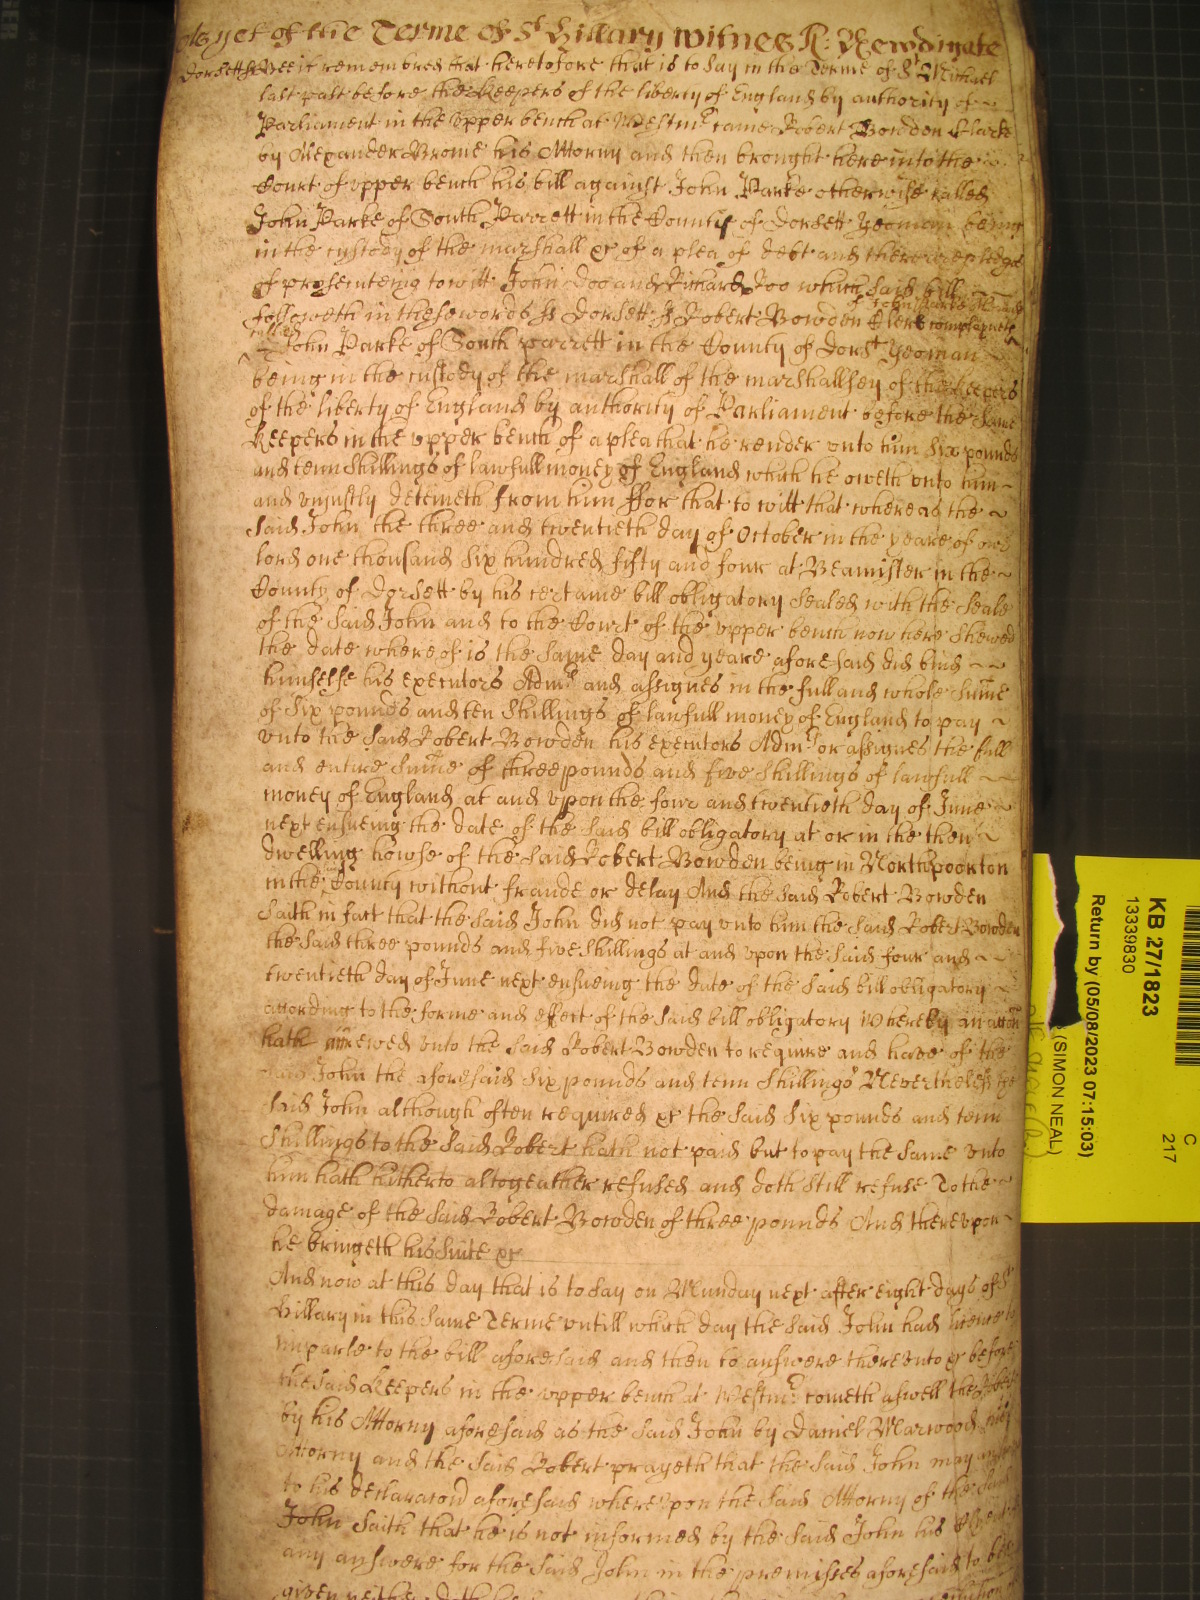 yet of the Terme of St Hillary Witnes R: Newdigate
Dorsett ss Bee it remembred that heretofore that is to say in the Terme of St Michael
last past before the Keepers of the liberty of England by authority of
Parliament in the upper bench at Westmr came Robert Bowden Clarke
by Alexander Brome his Attorny and then brought here into the
Court of upper bench his bill against John Parke otherwise called
John Parke of South Parrett in the County of Dorsett Yeoman being
in the custody of the marshall &c of a plea of debt and there are pledges
of prosecuteing to witt John Doo and Richard Roo which said bill
followeth in these words ss Dorsett ss Robert Bowden Clerk complayneth
of John Parke
called
John Parke of South parrett in the County of Dorst Yeoman
being in the custody of the marshall of the marshallsey of the keepers
of the liberty of England by authority of Parliament before the same
Keepers in the upper bench of a plea that he render unto him six pounds
and tenn shillings of lawfull money of England which he oweth unto him
and unjustly deteineth from him ffor that to witt that whereas the
said John the three and twentieth day of October in the yeare of our
lord one thousand six hundred fifty and four at Beamister in the
County of Dorsett by his certaine bill obligatory sealed with the seale
of the said John and to the Court of the upper bench now here shewed
the date whereof is the same day and yeare aforesaid did bind
himselfe his executors Admrs and assignes in the full and whole sume
of six pounds and ten shillings of lawfull money of England to pay
unto the said Robert Bowden his executors Admrs or assignes the full
and entire sume of three pounds and five shillings of lawfull
money of England at and upon the four and twentieth day of June
next ensueing the date of the said bill obligatory at or in the then
dwelling howse of the said Robert Bowden being in Northpoorton
in the County without fraude or delay And the said Robert Bowden
saith in fact that the said John did not pay unto him the said Robert Bowden
the said three pounds and five shillings at and upon the said four and
twentieth day of June next ensueing the date of the said bill obligatory
according to the forme and effect of the said bill obligatory Whereby an accon
hath accrewed unto the said Robert Bowden to require and have of the
said John the aforesaid six pounds and tenn shillings Neverthelesse the
said John although often required &c the said six pounds and tenn
shillings to the said Robert hath not paid but to pay the same unto
him hath hitherto altogeather refused and doth still refuse To the
damage of the said Robert Bowden of three pounds And thereupon
he bringeth his suite &c
And now at this day that is to say on Munday next after eight days of St
Hillary in this same Terme untill which day the said John had licence to
imparle to the bill aforesaid and then to answere thereunto &c before
the said Keepers in the upper bench at Westmr cometh aswell the Robert
by his Attorny aforesaid as the said John by Daniel Marwood his
Attorny and the said Robert prayeth that the said John may answere
to his declaracon aforesaid whereupon the said Attorny of the said
John saith that he is not informed by the said John his Client of
any answere for the said John in the premisses aforesaid to be
given
KB 27/1823
13339830
Return by (05/08/2023 07:15:03)
(SIMON NEAL)
C
217